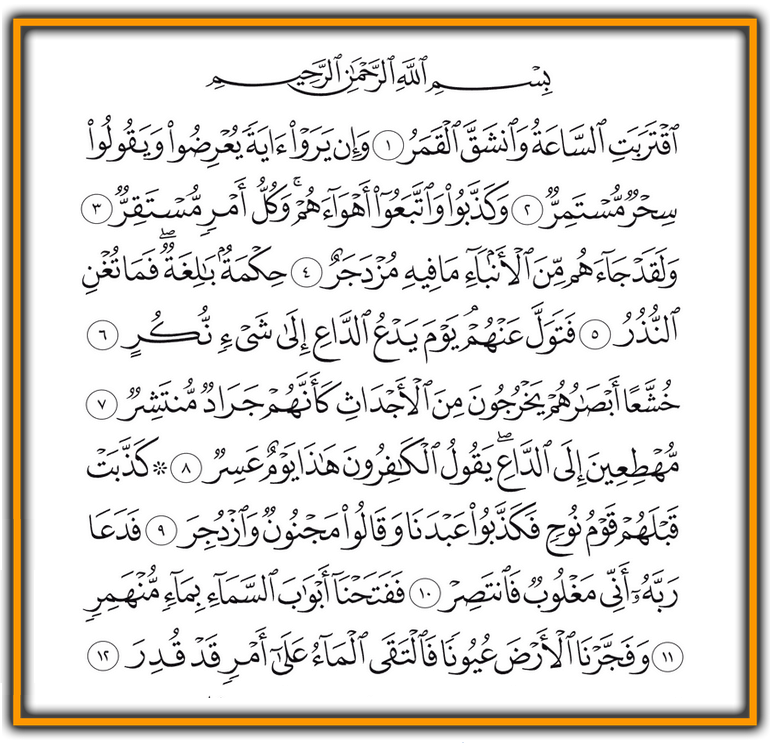 بِسْمِ ٱللَّهِ ٱلرَّحْمَٰنِ ٱلرَّحِيمِ
ٱقْتَرَبَتِ ٱلسَّاعَةُ وَٱنشَقَّ ٱلْقَمَرُ ١ وَإِن يَرَوْا۟ ءَايَةً يُعْرِضُوا۟ وَيَقُولُوا۟
سِحْرٌ مُّسْتَمِرٌّ ٢ وَكَذَّبُوا۟ وَٱتَّبَعُوٓا۟ أَهْوَآءَهُمْ ۚ وَكُلُّ أَمْرٍ مُّسْتَقِرٌّ ٣
وَلَقَدْ جَآءَهُم مِّنَ ٱلْأَنۢبَآءِ مَا فِيهِ مُزْدَجَرٌ ٤ حِكْمَةٌۢ بَٰلِغَةٌ ۖ فَمَا تُغْنِ
ٱلنُّذُرُ ٥ فَتَوَلَّ عَنْهُمْ ۘ يَوْمَ يَدْعُ ٱلدَّاعِ إِلَىٰ شَىْءٍ نُّكُرٍ ٦
خُشَّعًا أَبْصَٰرُهُمْ يَخْرُجُونَ مِنَ ٱلْأَجْدَاثِ كَأَنَّهُمْ جَرَادٌ مُّنتَشِرٌ ٧
مُّهْطِعِينَ إِلَى ٱلدَّاعِ ۖ يَقُولُ ٱلْكَٰفِرُونَ هَٰذَا يَوْمٌ عَسِرٌ ٨ * كَذَّبَتْ
قَبْلَهُمْ قَوْمُ نُوحٍ فَكَذَّبُوا۟ عَبْدَنَا وَقَالُوا۟ مَجْنُونٌ وَٱزْدُجِرَ ٩ فَدَعَا
رَبَّهُۥٓ أَنِّى مَغْلُوبٌ فَٱنتَصِرْ ١٠ فَفَتَحْنَآ أَبْوَٰبَ ٱلسَّمَآءِ بِمَآءٍ مُّنْهَمِرٍ
١١ وَفَجَّرْنَا ٱلْأَرْضَ عُيُونًا فَٱلْتَقَى ٱلْمَآءُ عَلَىٰٓ أَمْرٍ قَدْ قُدِرَ ١٢